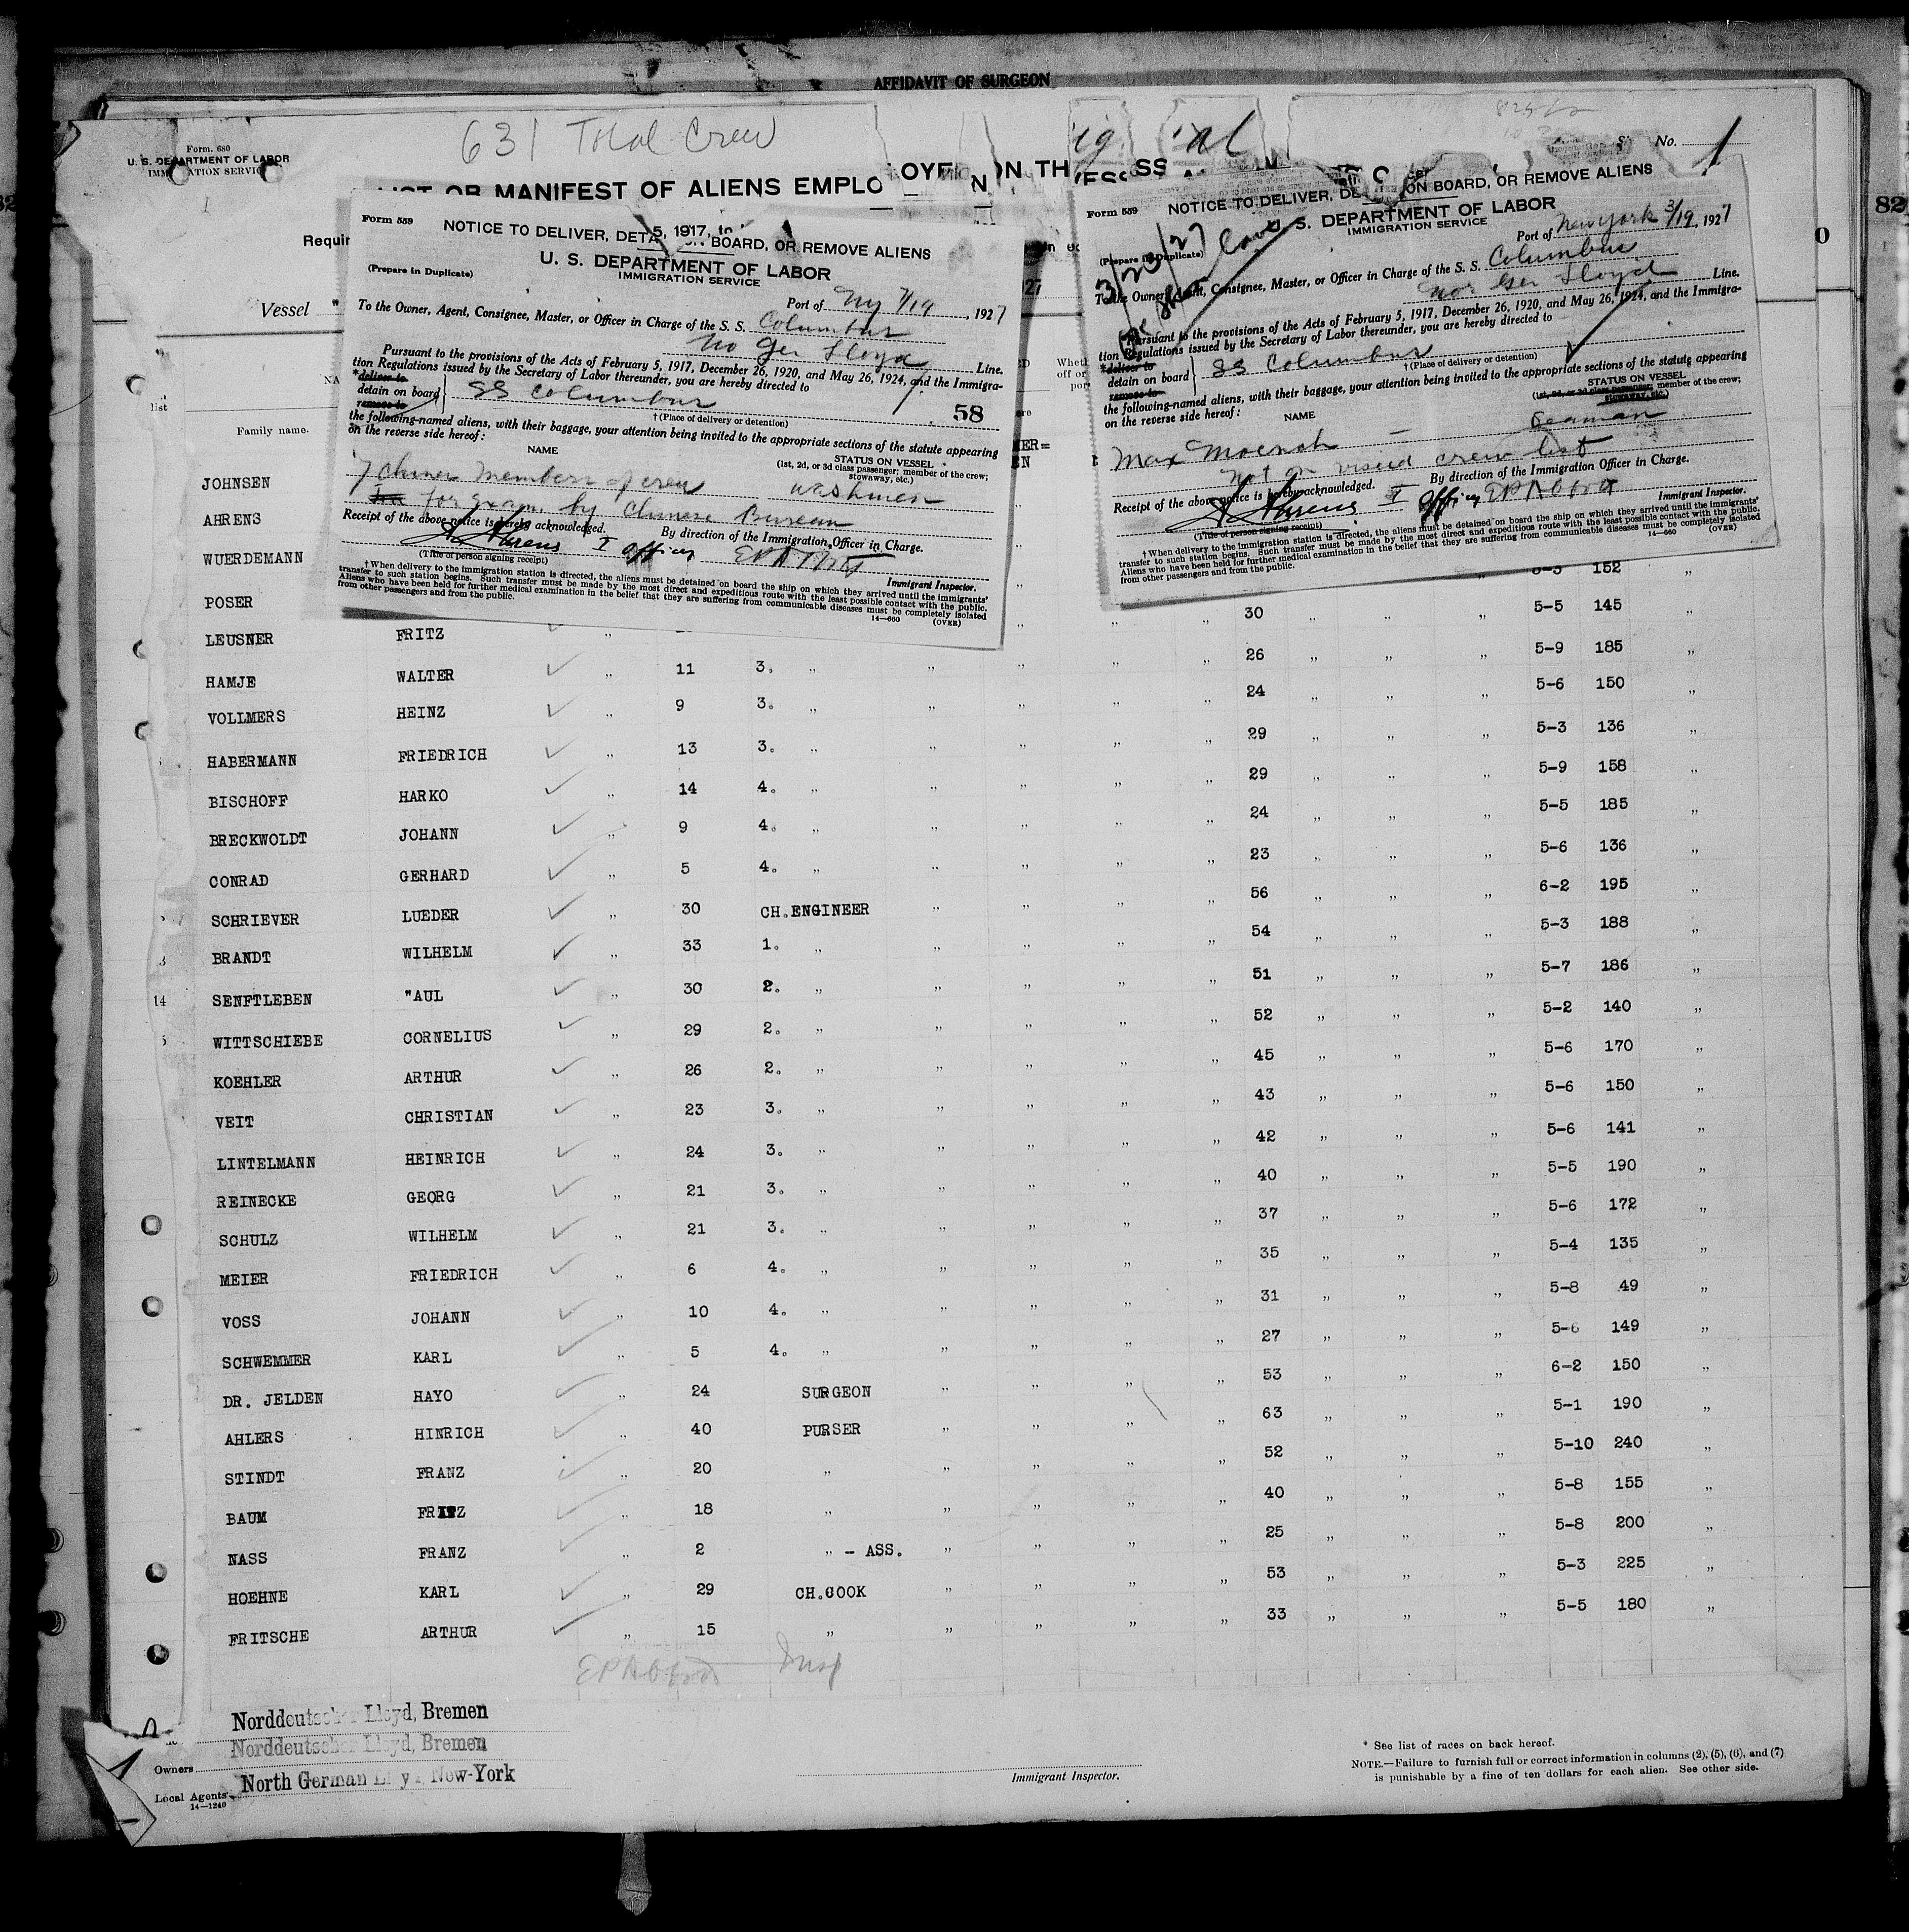 AFFIDAVIT OF SURGEON
631 Total Crew
Form. 680
U. S. DEPARTMENT OF LABOR
No. 1
OR MANIFEST OF ALIENS EMPLO
82
Vessel
list
Family name.
Form 559
NOTICE TO DELIVER, DETA ON BOARD, OR REMOVE ALIENS
5, 1917,
U. S. DEPARTMENT OF LABOR
IMMIGRATION SERVICE
(Prepare in Duplicate)
Port of NY 7/19, 1927
To the Owner, Agent, Consignee, Master, or Officer in Charge of the S. S. Columbus
No Ger Lloyd Line.
Pursuant to the provisions of the Acts of February 5, 1917, December 26, 1920, and May 26, 1924, and the Immigra-
tion Regulations issued by the Secretary of Labor thereunder, you are hereby directed to
*deliver to
detain on board SS Columbus 58
remove to
† (Place of delivery or detention)
the following-named aliens, with their baggage, your attention being invited to the appropriate sections of the statute appearing
on the reverse side hereof:
NAME
STATUS ON VESSEL
(1st, 2d, or 3d class passenger; member of the crew;
stowaway, etc.)
7 Chinese members of crew washmen
for exam. by Chinese Bureau
Receipt of the above notice is hereby acknowledged.
By direction of the Immigration Officer in Charge.
Ahrens I Officer
(Title of person signing receipt)
Immigrant Inspector.
† When delivery to the immigration station is directed, the aliens must be detained on board the ship on which they arrived until the immigrants'
transfer to such station begins. Such transfer must be made by the most direct and expeditious route with the least possible contact with the public.
Aliens who have been held for further medical examination in the belief that they are suffering from communicable diseases must be completely isolated
from other passengers and from the public.
14—660 (OVER)
Form 559
NOTICE TO DELIVER, DE ON BOARD, OR REMOVE ALIENS
S. DEPARTMENT OF LABOR
IMMIGRATION SERVICE
(Prepare in Duplicate)
3/23/27
Port of New York 3/19, 1927
To the Owner, Agent, Consignee, Master, or Officer in Charge of the S. S. Columbus
Nor Ger Lloyd Line.
Pursuant to the provisions of the Acts of February 5, 1917, December 26, 1920, and May 26, 1924, and the Immigra-
tion Regulations issued by the Secretary of Labor thereunder, you are hereby directed to
*deliver to
detain on board SS Columbus
remove to
† (Place of delivery or detention)
the following-named aliens, with their baggage, your attention being invited to the appropriate sections of the statute appearing
on the reverse side hereof:
NAME
STATUS ON VESSEL
(1st, 2d, or 3d class passenger; member of the crew;
stowaway, etc.)
Max Seaman
not on visaed crew list
Receipt of the above notice is hereby acknowledged.
By direction of the Immigration Officer in Charge.
Ahrens I Officer
(Title of person signing receipt)
Immigrant Inspector.
† When delivery to the immigration station is directed, the aliens must be detained on board the ship on which they arrived until the immigrants'
transfer to such station begins. Such transfer must be made by the most direct and expeditious route with the least possible contact with the public.
Aliens who have been held for further medical examination in the belief that they are suffering from communicable diseases must be completely isolated
from other passengers and from the public.
(OVER)
14—660
JOHNSEN
AHRENS
WUERDEMANN 152 "
POSER 30 " " " 5-5 145 "
LEUSNER FRITZ 26 " " " 5-9 185 "
HAMJE WALTER " 11 3. " " " " " 24 " " " 5-6 150 "
VOLLMERS HEINZ " 9 3. " " " " " 29 " " " 5-3 136 "
HABERMANN FRIEDRICH " 13 3. " " " " " 29 " " " 5-9 158 "
BISCHOFF HARKO " 14 4. " " " " " 24 " " " 5-5 185 "
BRECKWOLDT JOHANN " 9 4. " " " " " 23 " " " 5-6 136 "
CONRAD GERHARD " 5 4. " " " " " 56 " " " 6-2 195 "
SCHRIEVER LUEDER " 30 CH.ENGINEER " " " " 54 " " " 5-3 188 "
BRANDT WILHELM " 33 1. " " " " " 51 " " " 5-7 186 "
14 SENFTLEBEN "AUL " 30 2. " " " " " 52 " " " 5-2 140 "
WITTSCHIEBE CORNELIUS " 29 2. " " " " " 45 " " " 5-6 170 "
KOEHLER ARTHUR " 26 2. " " " " " 43 " " " 5-6 150 "
VEIT CHRISTIAN " 23 3. " " " " " 42 " " " 5-6 141 "
LINTELMANN HEINRICH " 24 3. " " " " " 40 " " " 5-5 190 "
REINECKE GEORG " 21 3. " " " " " 37 " " " 5-6 172 "
SCHULZ WILHELM " 21 3. " " " " " 35 " " " 5-4 135 "
MEIER FRIEDRICH " 6 4. " " " " " 31 " " " 5-8 49 "
VOSS JOHANN " 10 4. " " " " " 27 " " " 5-6 149 "
SCHWEMMER KARL " 5 4. " " " " " 53 " " " 6-2 150 "
DR. JELDEN HAYO " 24 SURGEON " " " " 63 " " " 5-1 190 "
AHLERS HINRICH " 40 PURSER " " " " 52 " " " 5-10 240 "
STINDT FRANZ " 20 " " " " " 40 " " " 5-8 155 "
BAUM FRITZ " 18 " " " " " 25 " " " 5-8 200 "
NASS FRANZ " 2 " - ASS. " " " " 53 " " " 5-3 225 "
HOEHNE KARL " 29 CH.COOK " " " " 33 " " " 5-5 180 "
FRITSCHE ARTHUR " 15 " " " " "
Insp
Norddeutscher Lloyd, Bremen
Norddeutscher Lloyd, Bremen
Owners
North German Lloyd, New-York
Local Agents
14—1240
Immigrant Inspector.
* See list of races on back hereof.
NOTE.—Failure to furnish full or correct information in columns (2), (5), (6), and (7)
is punishable by a fine of ten dollars for each alien. See other side.